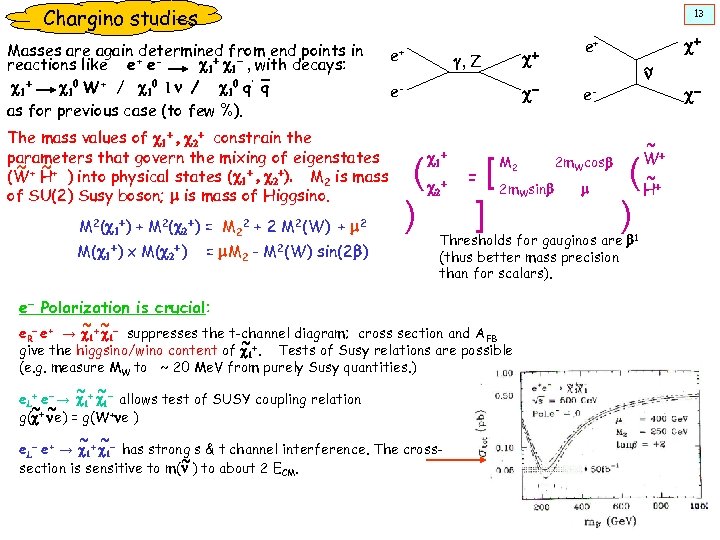 Chargino studies
13
Masses are again determined from end points in
reactions like e⁺ e⁻ → χ₁⁺ χ₁⁻ , with decays:
χ₁⁺ → χ₁⁰ W⁺ / χ₁⁰ l ν / χ₁⁰ q' q̅
as for previous case (to few %).
e⁺
e⁻
γ, Z
χ⁺
χ⁻
e⁺
e⁻
ν̃
χ⁺
χ⁻
The mass values of χ₁⁺ , χ₂⁺ constrain the
parameters that govern the mixing of eigenstates
(W̃⁺ H̃⁺ ) into physical states (χ₁⁺ , χ₂⁺). M₂ is mass
of SU(2) Susy boson; μ is mass of Higgsino.
( χ₁⁺ χ₂⁺ ) = [ M₂ 2m_W cosβ
2m_W sinβ μ ] ( W̃⁺ H̃⁺ )
M²(χ₁⁺) + M²(χ₂⁺) = M₂² + 2 M²(W) + μ²
M(χ₁⁺) x M(χ₂⁺) = μM₂ - M²(W) sin(2β)
Thresholds for gauginos are β¹
(thus better mass precision
than for scalars).
e⁻ Polarization is crucial:
e_R⁻ e⁺ → χ̃₁⁺ χ̃₁⁻ suppresses the t-channel diagram; cross section and A_FB
give the higgsino/wino content of χ̃₁⁺. Tests of Susy relations are possible
(e.g. measure M_W to ~ 20 MeV from purely Susy quantities.)
e_L⁺ e⁻ → χ̃₁⁺ χ̃₁⁻ allows test of SUSY coupling relation
g(χ̃⁺ν̃e) = g(W⁺νe )
e_L⁻ e⁺ → χ̃₁⁺ χ̃₁⁻ has strong s & t channel interference. The cross-
section is sensitive to m(ν̃ ) to about 2 E_CM.
1.00
0.50
0.10
0.05
σ_tot (pb)
e⁺e⁻ → χ̃₁⁺χ̃₁⁻
√s = 600 GeV
Pol.e⁻ = 0
μ = 400 GeV
M₂ = 250 GeV
tanβ = +2
50fb⁻¹
200 400 600 800
m_ν̃ (GeV)